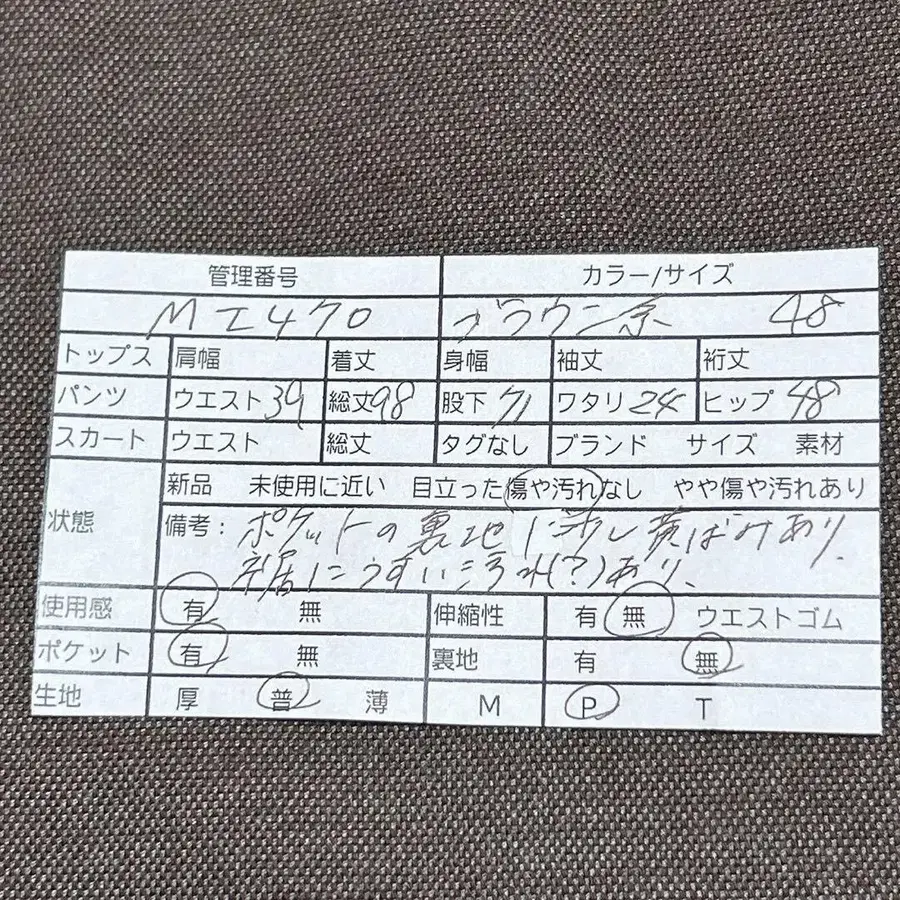 管理番号 カラー/サイズ
MI470 ブラウン系 48
トップス 肩幅 着丈 身幅 袖丈 裄丈
パンツ ウエスト39 総丈98 股下71 ワタリ24 ヒップ48
スカート ウエスト 総丈 タグなし ブランド サイズ 素材
状態 新品 未使用に近い 目立った傷や汚れなし やや傷や汚れあり
備考:ポケットの裏地に少し黄ばみあり.
裾にうすい汚れ(?)あり.
使用感 有 無 伸縮性 有 無 ウエストゴム
ポケット 有 無 裏地 有 無
生地 厚 普 薄 M P T